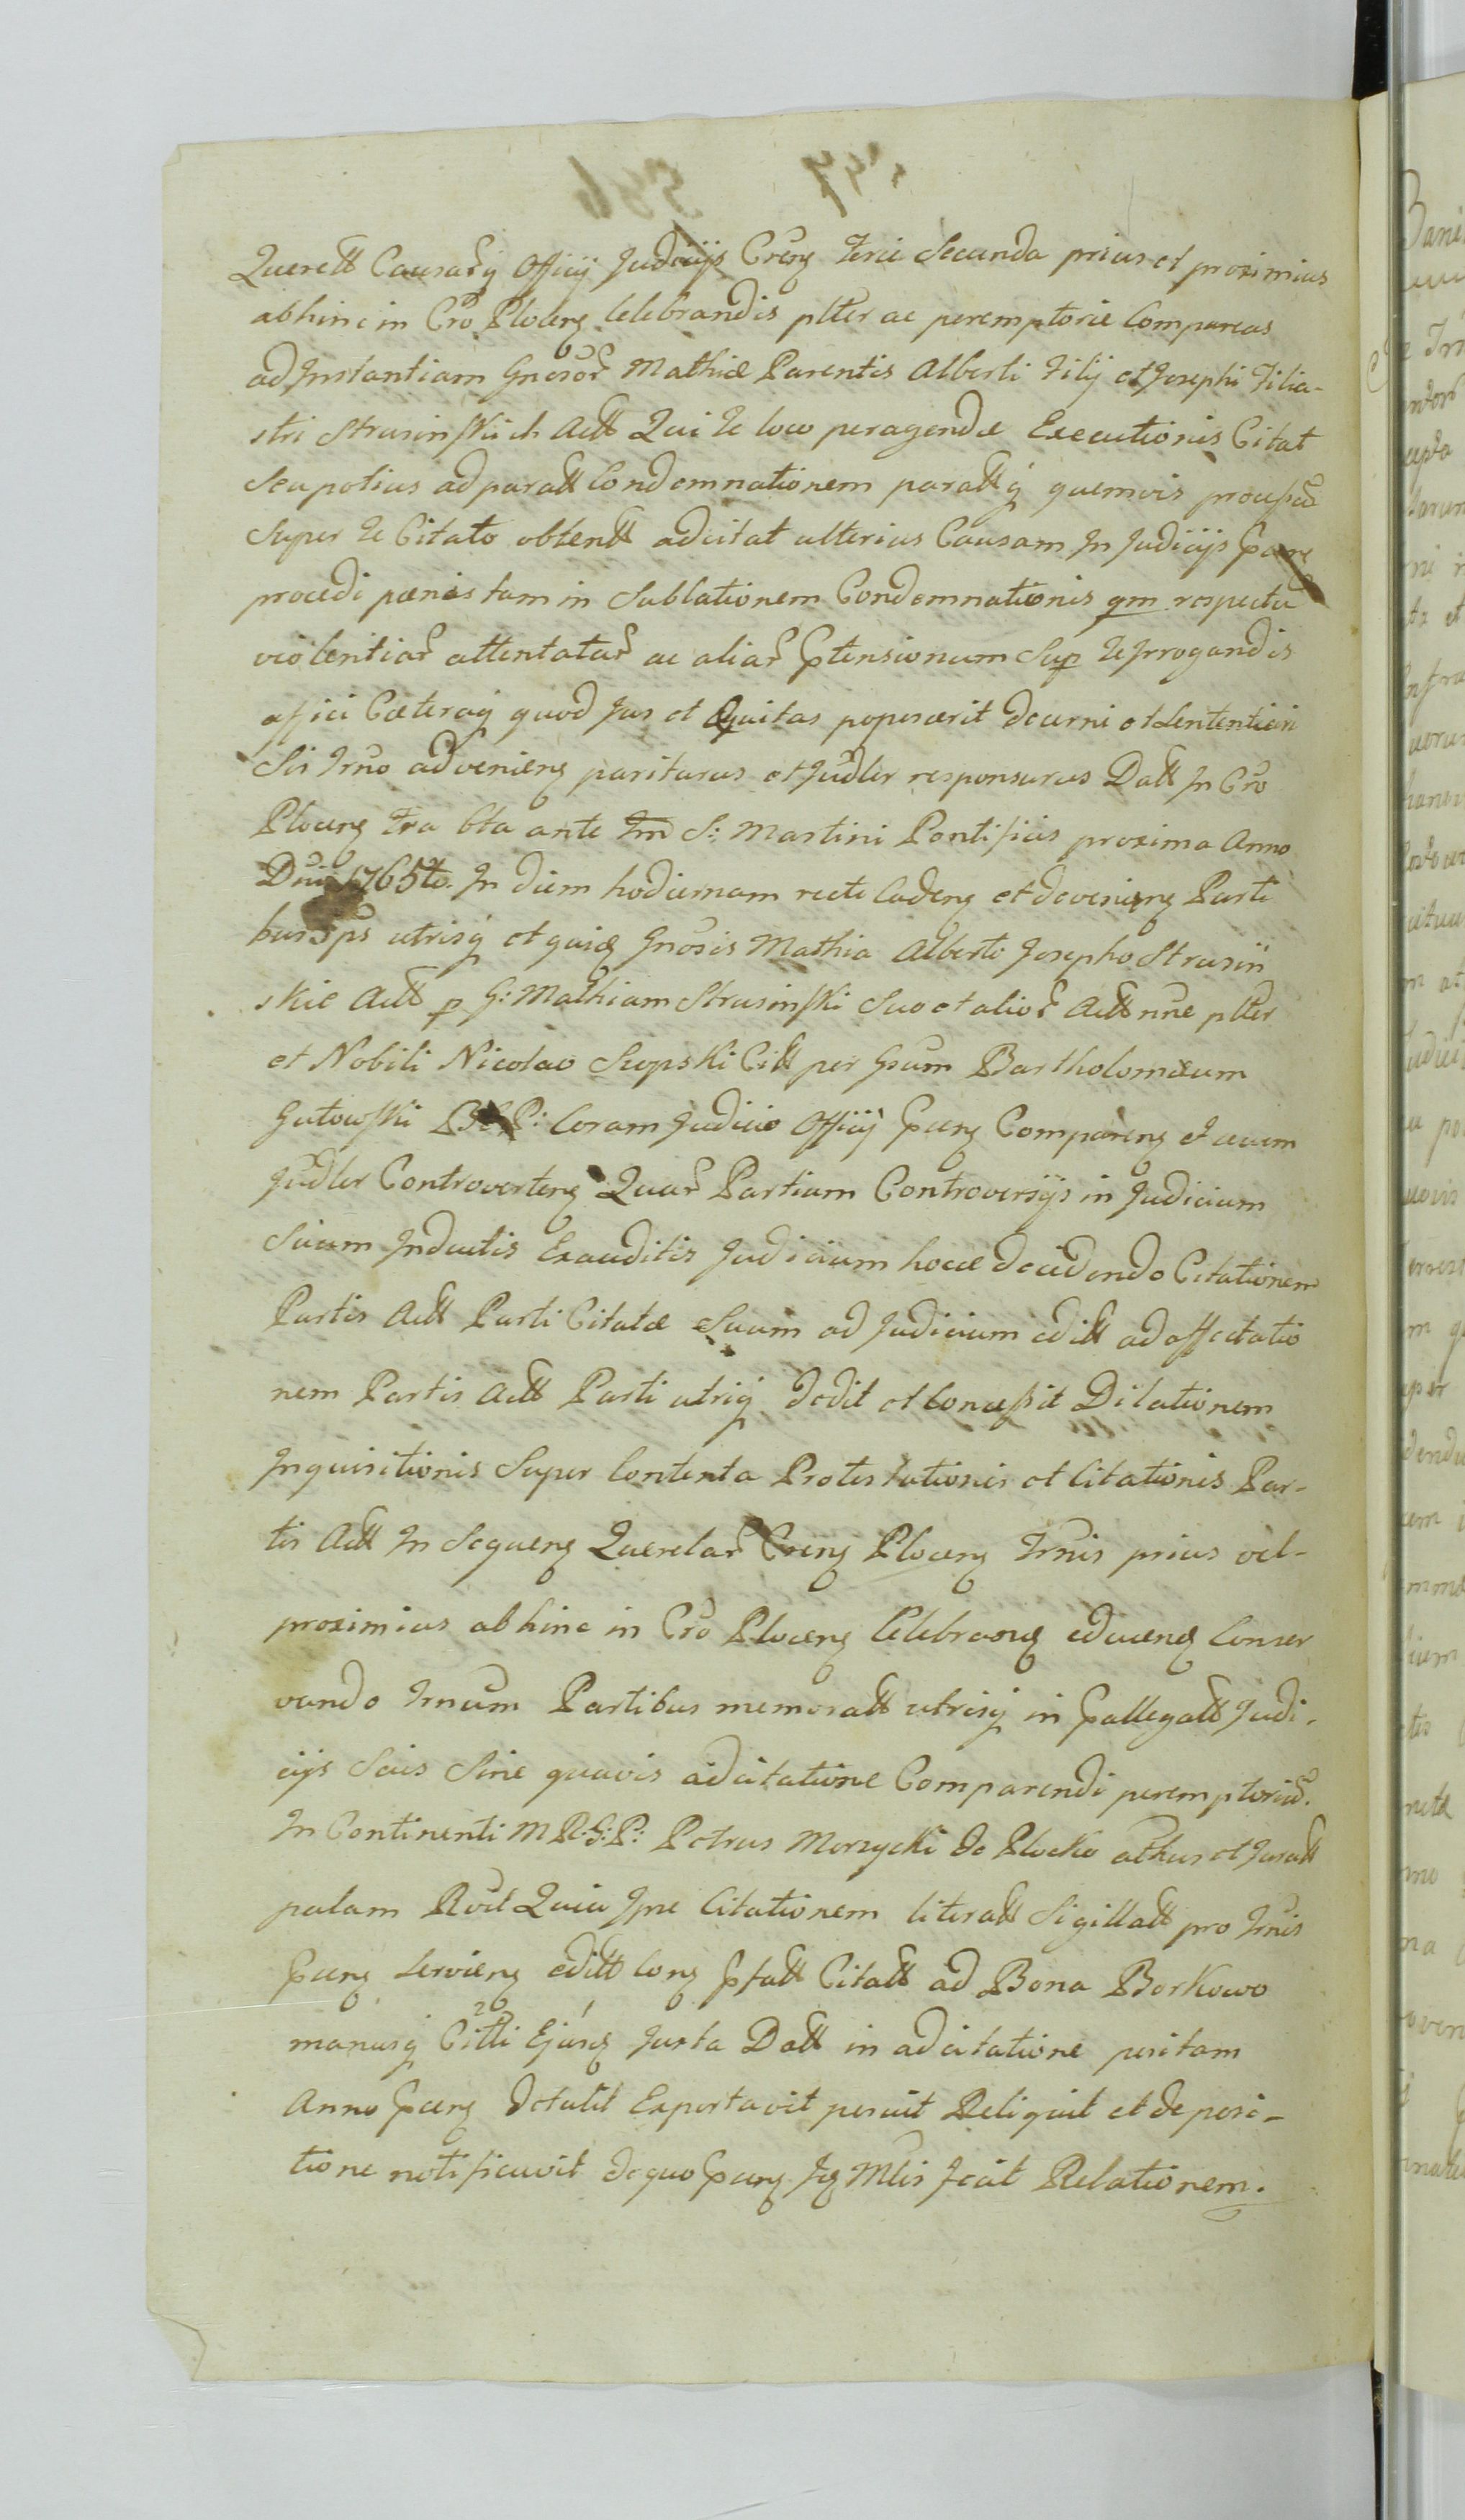 Querell Causarq Officij Judicijs Creng ferie Secunda prius et proximius
abhinc in Cro Ploceng Celebrandis plter ac peremptorie Compareas
ad Instantiam Gnosor Mathiæ Parentis Alberti Filij et Josephi Filia-
stri Strusinskich Actt Qui Te loco peragendæ Executionis Citat
Seu potius ad paratt Condemnationem parattq quemvis processu
Super Te Citato obtentt adcitat ulterius Causam In Judicijs
procedi pænis tam in Sublationem Condemnationis qm respectu
violentiar attentatar ac aliar Ptensionum Sup Te Irrogandis
affici Cæteraq quod Jus et Æquitas poposcerit decerni et Sententiari
Sis Trno advenieng pariturus et Judler responsurus Datt In Cro
Ploceng fra 6ta ante fm S: Martini Pontificis proxima Anno
Dni 1765to. In diem hodiernam recte Cadeng et devenieng Parti
bus Ips utrisq et quidq Gnosis Mathia Alberto Josepho Strusiń
skie Actt p G: Mathiam Strusinski Suo et alior Actt nne plter
et Nobili Nicolao Seopski Citt per Gsum Bartholomæum
Gutowski P: Coram Judicio Officij Pnceng Compareng et eaum
Judler Controverteng Quar Partium Controversijs in Judicium
Suum Inductis Exauditis Judicium hocce decidendo Citationem
Partis Actt Parti Citatæ Suum ad Judicium editt ad affectatio
nem Partis Actt Parti utriq dedit et Concessit Dilationem
Inquisitionis Super Contenta Protestationis et Citationis Par-
tis Actt In Sequeng Querelar Creng Ploceng Trnis prius vel-
proximius abhinc in Cro Ploceng Celebrandq educeng Conser
vando Trnum Partibus memoratt utrisq in Pallegatt Judi-
cijs Suis Sine quavis adcitatione Comparendi peremptoriu.
In Continenti M R: G: P: Petrus Morzycki de Plocko athus et Juratt
palam Rvit Quia Ipse Citationem literatt Sigillatt pro Trnis
Pnceng Servieng editt Cong Pfatt Citatt ad Bona Borkowo
manusq Citti Ejusq Juxta Datt in adcitatione positam
Anno Pnceng detulit Exportavit posuit Reliquit et de posi-
tione notificavit de quo Pnceng Jq Mlis fecit Relationem.